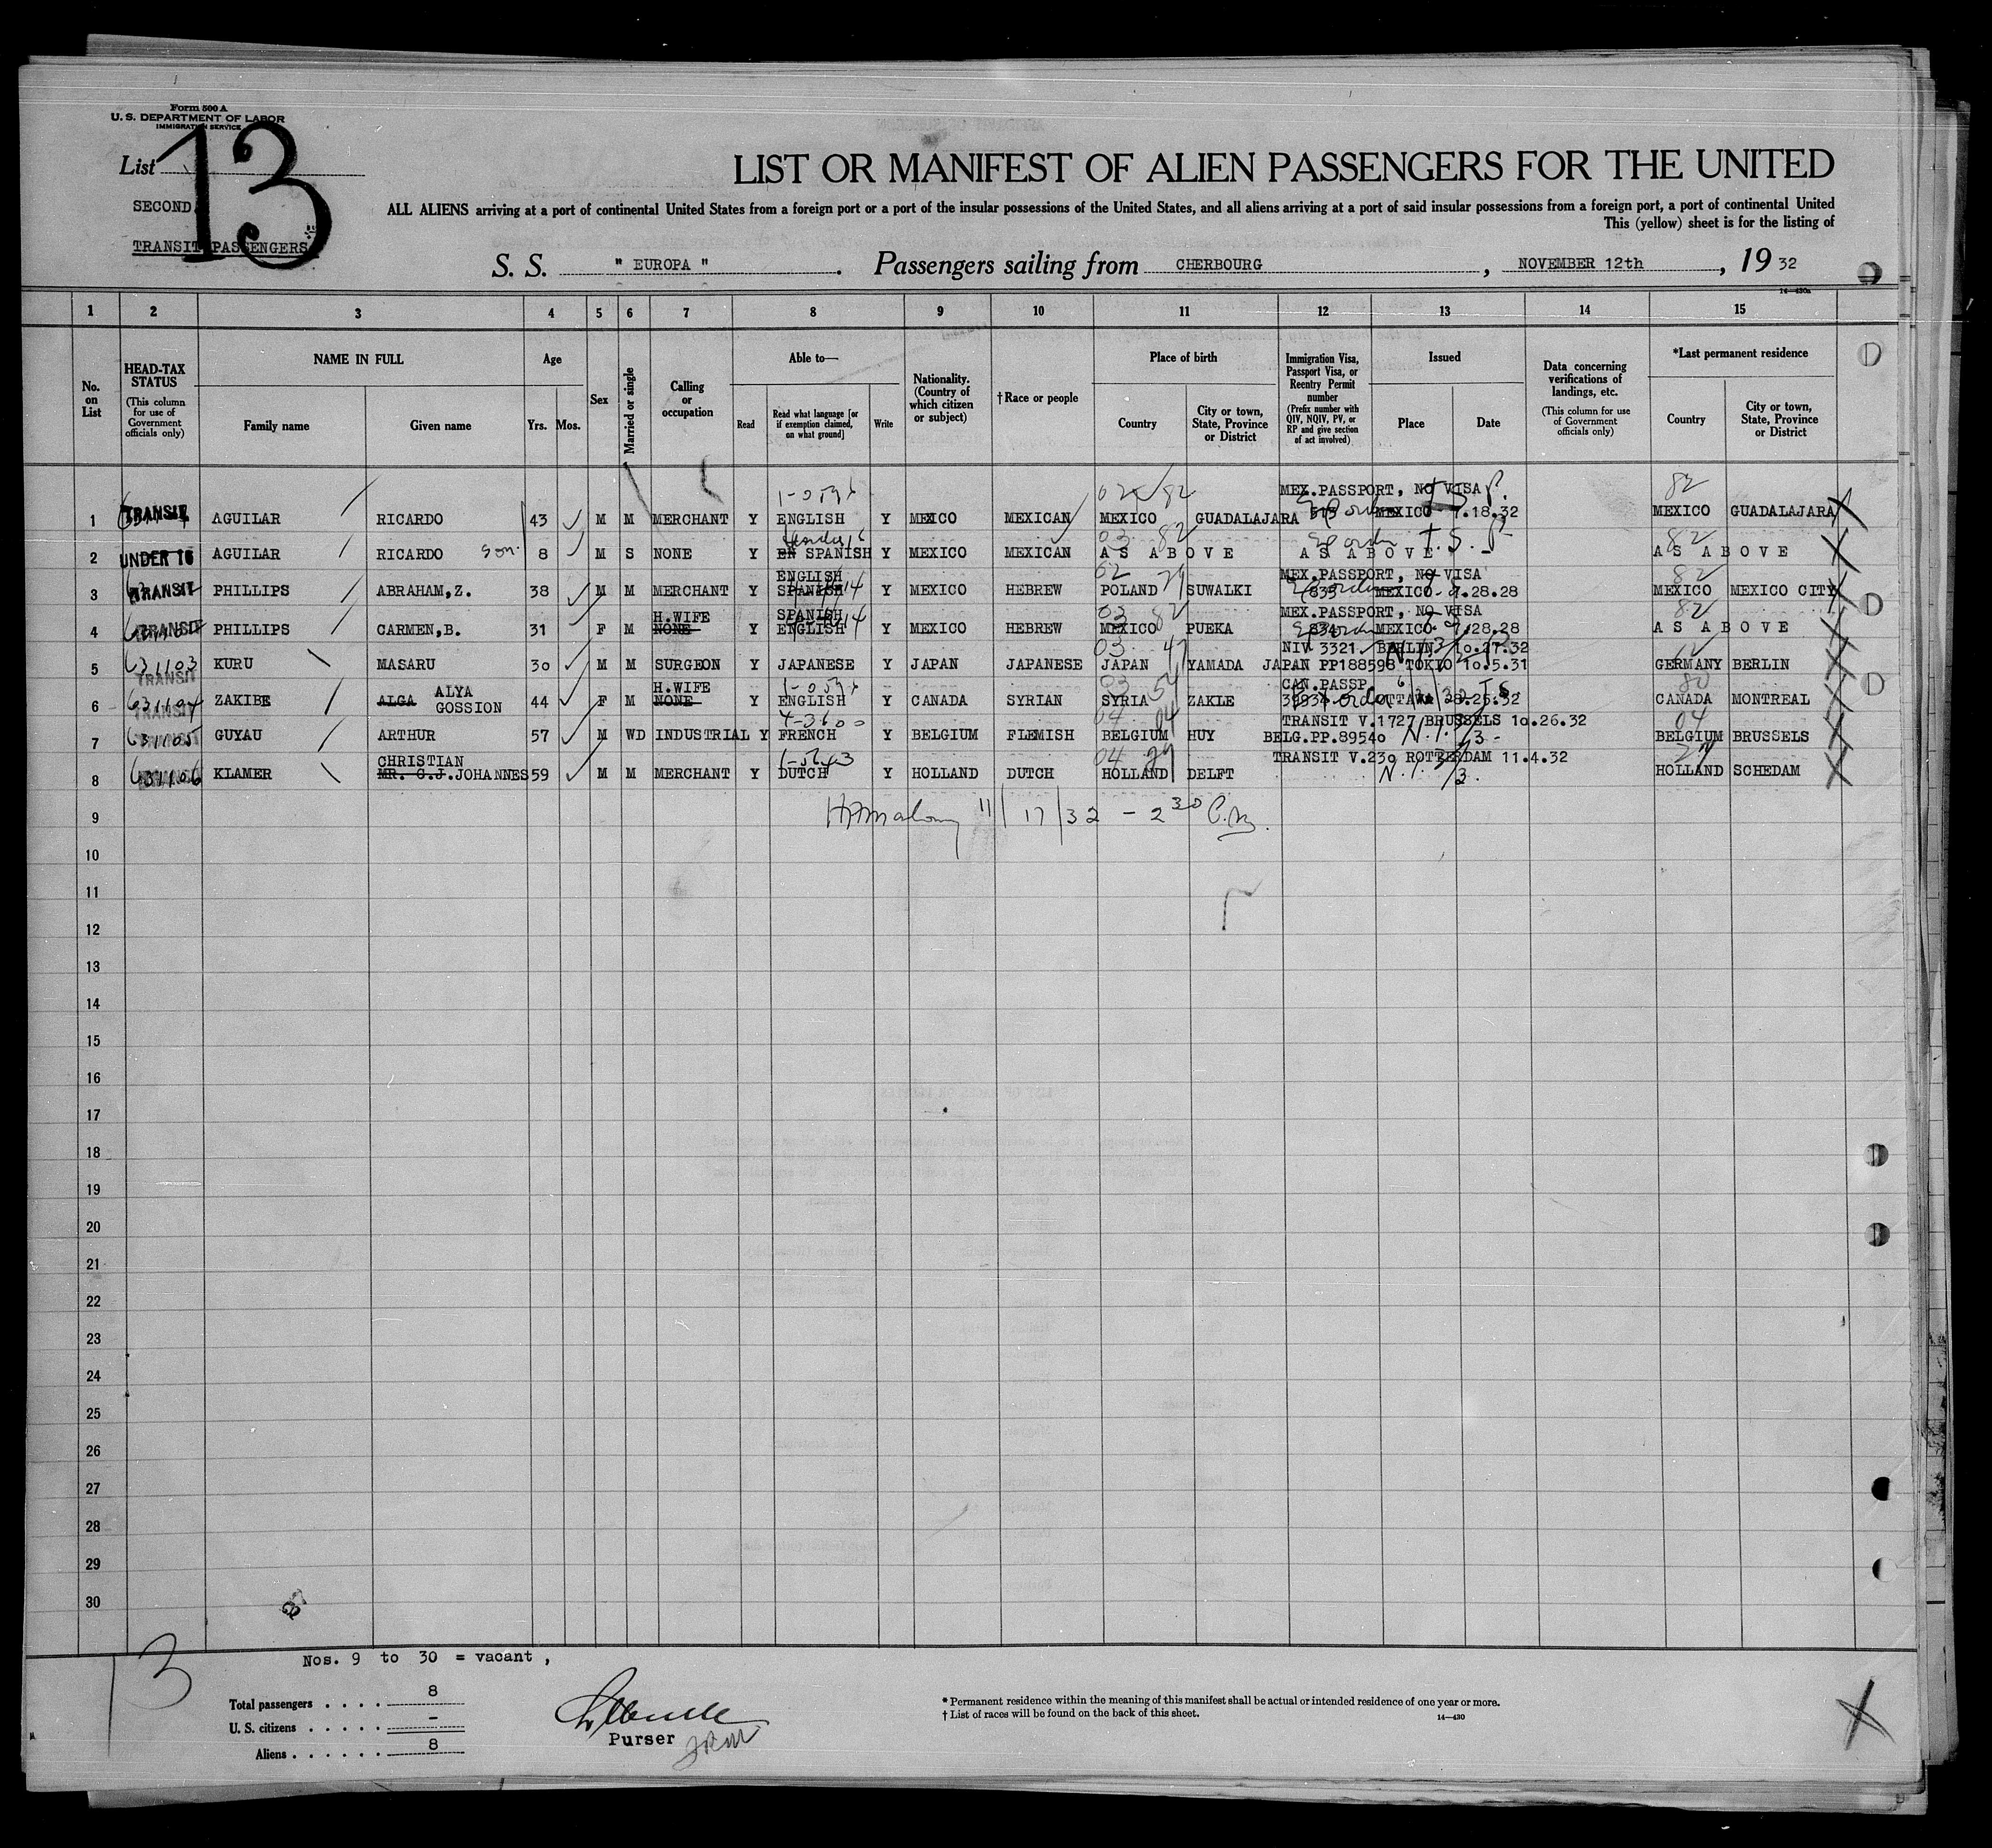 Form 500 A
U. S. DEPARTMENT OF LABOR
IMMIGRATION SERVICE
List 13
SECOND
TRANSIT PASSENGERS
LIST OR MANIFEST OF ALIEN PASSENGERS FOR THE UNITED
ALL ALIENS arriving at a port of continental United States from a foreign port or a port of the insular possessions of the United States, and all aliens arriving at a port of said insular possessions from a foreign port, a port of continental United
This (yellow) sheet is for the listing of
S. S. " EUROPA " . Passengers sailing from CHERBOURG , NOVEMBER 12th , 19 32
14—430a
1 2 3 4 5 6 7 8 9 10 11 12 13 14 15
No. on List
HEAD-TAX STATUS
(This column for use of Government officials only)
NAME IN FULL
Family name Given name
Age
Yrs. Mos.
Sex
Married or single
Calling or occupation
Able to—
Read Read what language [or if exemption claimed, on what ground] Write
Nationality. (Country of which citizen or subject)
† Race or people
Place of birth
Country City or town, State, Province or District
Immigration Visa, Passport Visa, or Reentry Permit number
(Prefix number with QIV, NQIV, PV, or RP and give section of act involved)
Issued
Place Date
Data concerning verifications of landings, etc.
(This column for use of Government officials only)
*Last permanent residence
Country City or town, State, Province or District
02 82 MEX.PASSPORT, NO VISA 82
1 TRANSIT AGUILAR RICARDO 43 M M MERCHANT Y ENGLISH Y MEXICO MEXICAN MEXICO GUADALAJARA 513 MEXICO 7.18.32 MEXICO GUADALAJARA
03 82 T. S. P. 82
2 UNDER 16 AGUILAR RICARDO son 8 M S NONE Y EN SPANISH Y MEXICO MEXICAN AS ABOVE AS ABOVE AS ABOVE
ENGLISH 02 MEX.PASSPORT, NO VISA 82
3 TRANSIT PHILLIPS ABRAHAM,Z. 38 M M MERCHANT Y SPANISH Y MEXICO HEBREW POLAND SUWALKI 835 MEXICO 7.28.28 MEXICO MEXICO CITY
H.WIFE SPANISH 03 82 MEX.PASSPORT, NO VISA 82
4 TRANSIT PHILLIPS CARMEN,B. 31 F M NONE Y ENGLISH Y MEXICO HEBREW MEXICO PUEKA 834 MEXICO 7.28.28 AS ABOVE
03 47 NIV 3321 BERLIN 10.27.32
5 631103 TRANSIT KURU MASARU 30 M M SURGEON Y JAPANESE Y JAPAN JAPANESE JAPAN YAMADA JAPAN PP188598 TOKIO 10.5.31 GERMANY BERLIN
ALYA H.WIFE 03 54 CAN.PASSP 80
6 631104 TRANSIT ZAKIBE ALGA GOSSION 44 F M NONE Y ENGLISH Y CANADA SYRIAN SYRIA ZAKLE OTTAWA CANADA MONTREAL
04 04 TRANSIT V.1727 BRUSSELS 10.26.32 04
7 631105 TRANSIT GUYAU ARTHUR 57 M WD INDUSTRIAL Y FRENCH Y BELGIUM FLEMISH BELGIUM HUY BELG.PP.89540 BELGIUM BRUSSELS
CHRISTIAN 04 29 TRANSIT V.239 ROTTERDAM 11.4.32
8 631106 KLAMER MR. C.J. JOHANNES 59 M M MERCHANT Y DUTCH Y HOLLAND DUTCH HOLLAND DELFT HOLLAND SCHEDAM
9 11/17/32 - 2 30
10
11
12
13
14
15
16
17
18
19
20
21
22
23
24
25
26
27
28
29
30
13
Nos. 9 to 30 = vacant ,
Total passengers . . . . 8
U. S. citizens . . . . . -
Aliens . . . . . . 8
Purser
* Permanent residence within the meaning of this manifest shall be actual or intended residence of one year or more.
† List of races will be found on the back of this sheet.
14—430